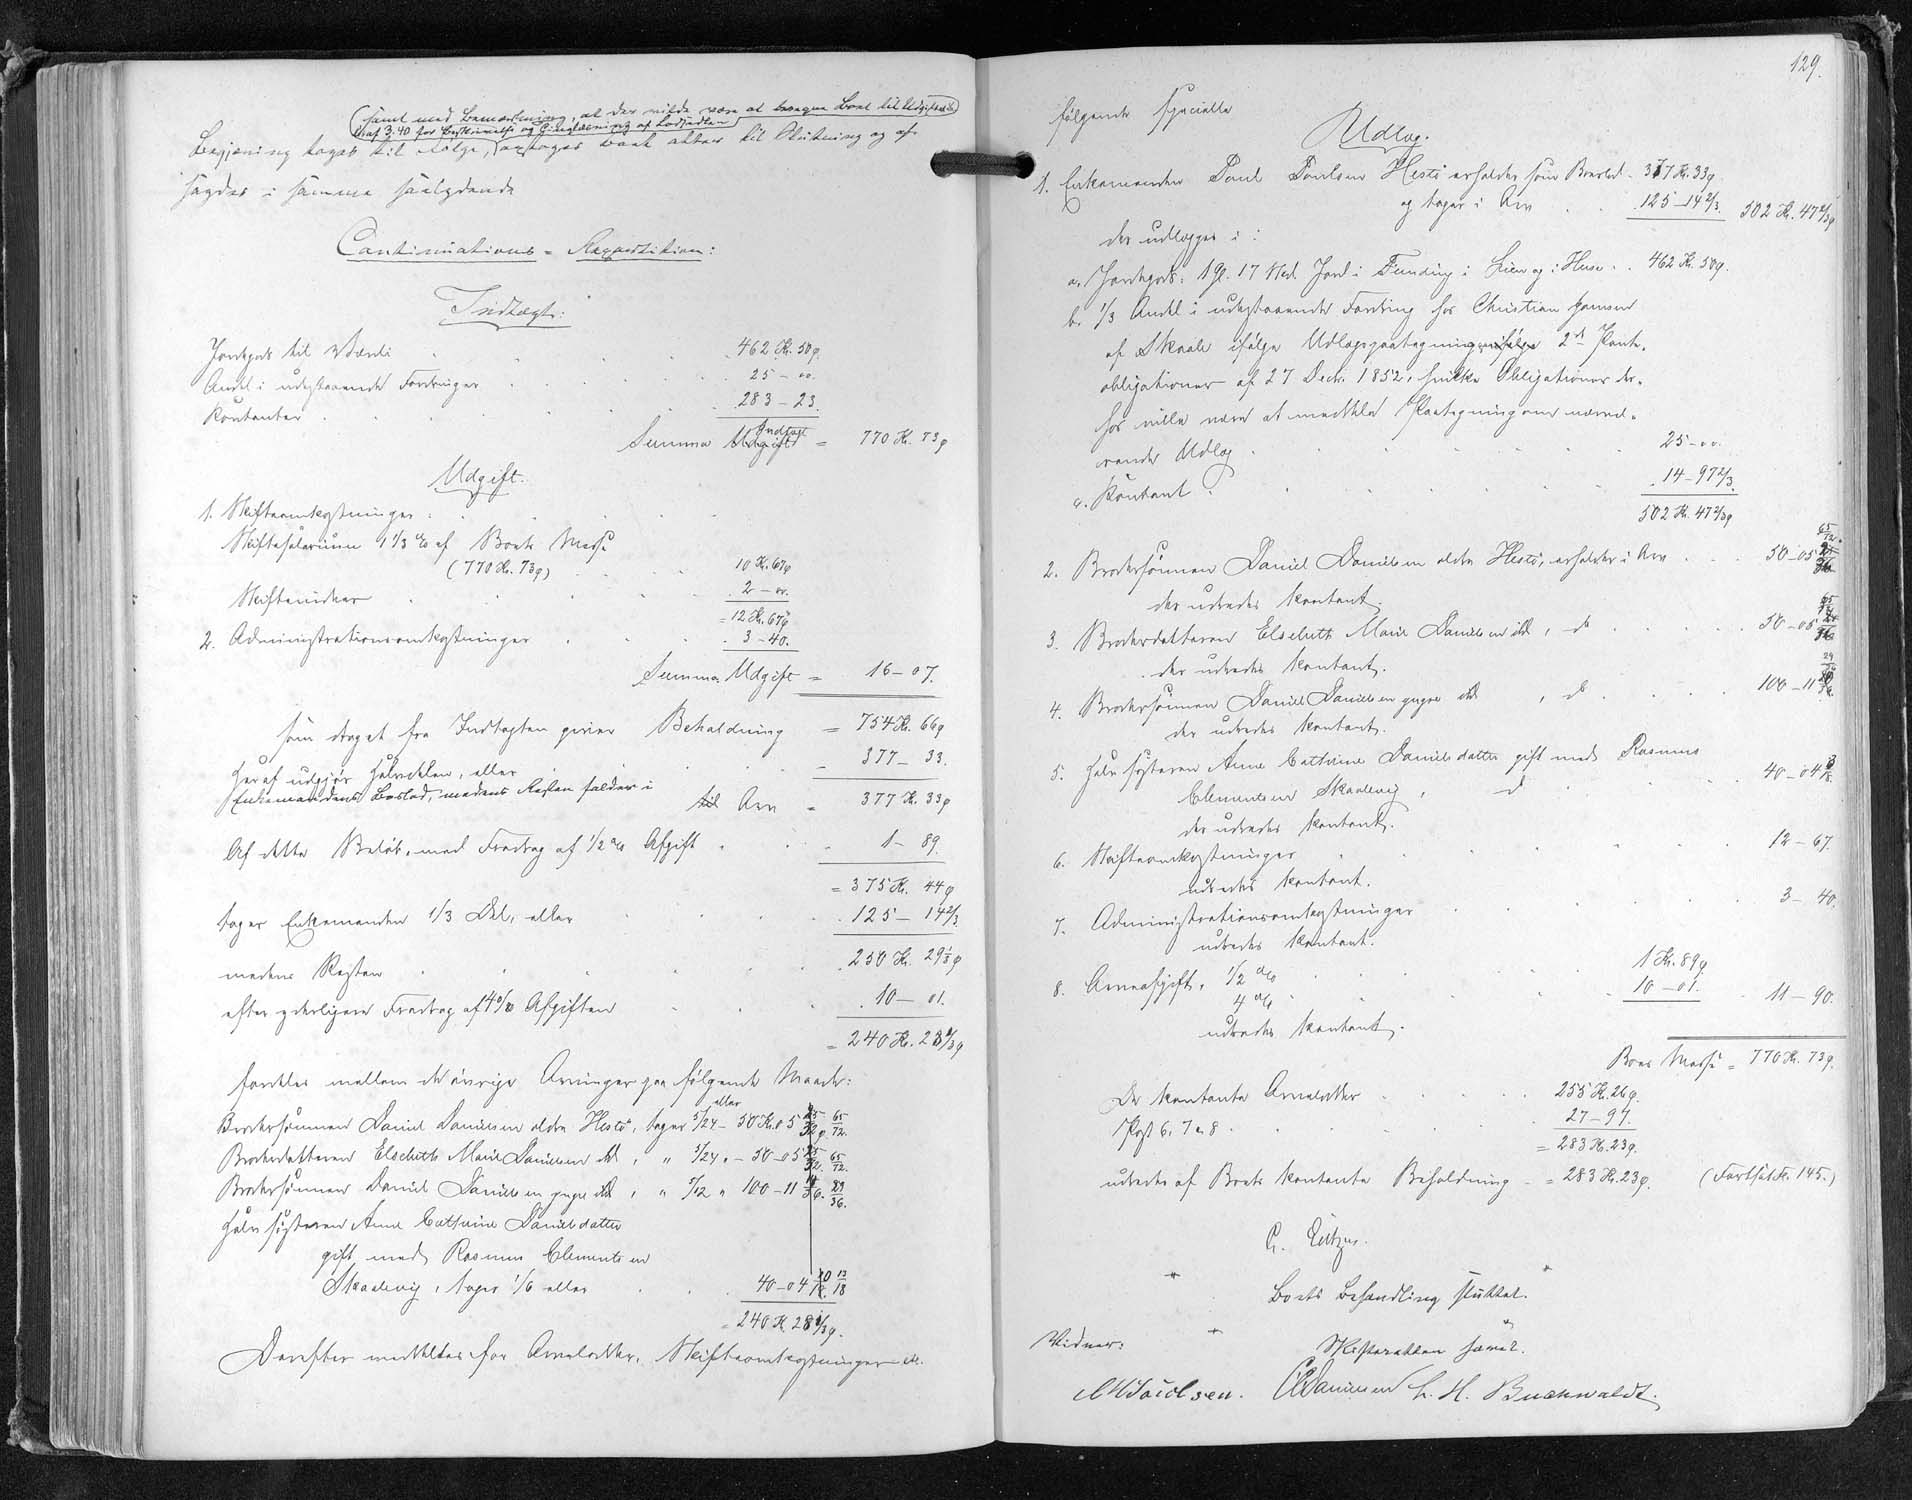 (samt med Bemærkning, at der vilde være at beregne Boet til Udgift
3.40 for Beskrivelse og Tinglæsning af Lodsedlen)
Begjæring toges til Følge, optoges Boet atter til Slutning og af-
sagdes i samme saalydende
Continuations-Repartition:
Indtægt:
Jordgods til Værdi 462 Kr. 50 ø.
Andel i udestaaende Fordringer 25 - oo.
Kontanter 283 - 23.
Summa Indtægt = 770 Kr. 73 ø
Udgift.
1. Skifteomkostninger:
Skiftesalarium 1 1/3 % af Boets Masse
(770 Kr. 73 ø) 10 Kr. 67 ø
Skiftevidner 2 - oo.
= 12 Kr. 67 ø
2. Administrationsomkostninger 3 - 40.
Summa Udgift = 16 - 07.
som draget fra Indtægten giver Beholdning = 754 Kr. 66 ø
Heraf udgjør Halvdelen, eller
Enkemandens Boslod, medens Resten falder i - 377 - 33.
til Arv = 377 Kr. 33 ø
Af dette Beløb, med Fradrag af 1/2 % Afgift 1 - 89.
= 375 Kr. 44 ø
tager Enkemanden 1/3 Del, eller 125 - 14 2/3.
medens Resten 250 Kr. 29 1/3 ø
efter yderligere Fradrag af 4 % Afgiften 10 - 01.
= 240 Kr. 28 1/3 ø
fordeles mellem de øvrige Arvinger paa følgende Maade:
Brodersønnen Daniel Danielsen ældre Hestø, tager 5/24 eller 50 Kr. 5 65/72.
Broderdatteren Elsebeth Marie Danielsen ibd, " 5/24 " - 50 - 05 65/72.
Brodersønnen Daniel Danielsen yngre ibd, " 5/12 " 100 - 11 29/36.
Halvsøsteren Anne Cathrine Danielsdatter
gift med Rasmus Clementsen
Skaalevig, tager 1/6 eller 40 - 04 13/18
= 240 Kr. 28 1/3 ø.
Derefter meddeles for Arvelodder, Skifteomkostninger etc.
129.
følgende specielle
Udlæg.
1. Enkemanden Poul Poulsen Hestø erholder som Boeslod 377 Kr. 33 ø
og tager i Arv 125 - 14 2/3. 502 Kr. 47 2/3 ø
der udlægges i:
a. Jordgods: 1 Gl. 17 Sk. Jord i Funding i Lien og i Huse 462 Kr. 50 ø.
b. 1/3 Andel i udestaaende Fordring hos Christian Hansen
af Skaale ifølge Udlægspaategning ifølge 2de Pant-
obligationer af 27 Decbr. 1852, hvilke Obligationer der-
for ville være at meddele Paategning om nærvæ-
rende Udlæg 25 - oo.
c. Kontant 14 - 97 2/3.
502 Kr. 47 2/3 ø
2. Brodersønnen Daniel Danielsen ældre Hestø, erholder i Arv 50 - 05 65/72.
der udredes kontant.
3. Broderdatteren Elsebeth Marie Danielsen ibd, do 50 - 05 65/72
der udredes kontant.
4. Brodersønnen Daniel Danielsen yngre ibd, do 100 - 11 29/36
der udredes kontant.
5. Halvsøsteren Anne Cathrine Danielsdatter gift med Rasmus
Clementsen Skaalevig, do 40 - 04 13/18.
der udredes kontant.
6. Skifteomkostninger 12 - 67.
udredes kontant.
7. Administrationsomkostninger 3 - 40.
udredes kontant.
8. Arveafgift, 1/2 % 1 Kr. 89 ø
4 % 10 - 01. 11 - 90.
udredes kontant.
Boets Masse = 770 Kr. 73 ø.
De kontante Arvelodder 255 Kr. 26 ø.
Post 6, 7 & 8 27 - 97.
= 283 Kr. 23 ø.
udredes af Boets kontante Beholdning = 283 Kr. 23 ø. (Fortsat Fr. 145.)
Boets Behandling sluttet.
Vidner: Skifteretten hævet.
C. H. Buchwaldt.